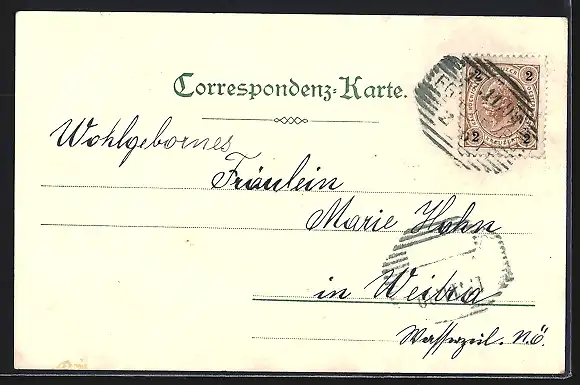 Correspondenz-Karte.
2 2
2 2
Wohlgebornes
Fräulein
Marie Hahn
in Weitra
Wasserzeil. N.Ö.